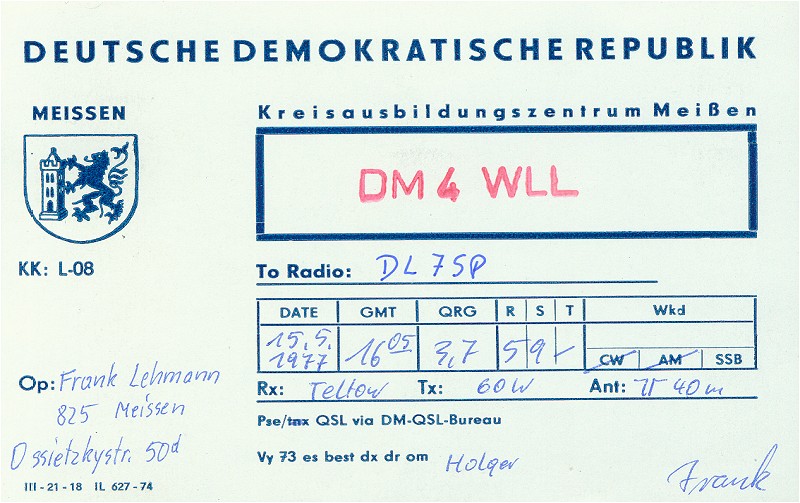 DEUTSCHE DEMOKRATISCHE REPUBLIK
MEISSEN
Kreisausbildungszentrum Meißen
DM4 WLL
KK: L-08
To Radio: DL7SP
DATE GMT QRG R S T Wkd
15.5. 1977 16 05 3,7 5 9 - CW AM SSB
Rx: Teltow Tx: 60W Ant: π 40m
Op: Frank Lehmann
825 Meissen
Ossietzkystr. 50d
Pse/tnx QSL via DM-QSL-Bureau
Vy 73 es best dx dr om Holger
Frank
III-21-18 IL 627-74